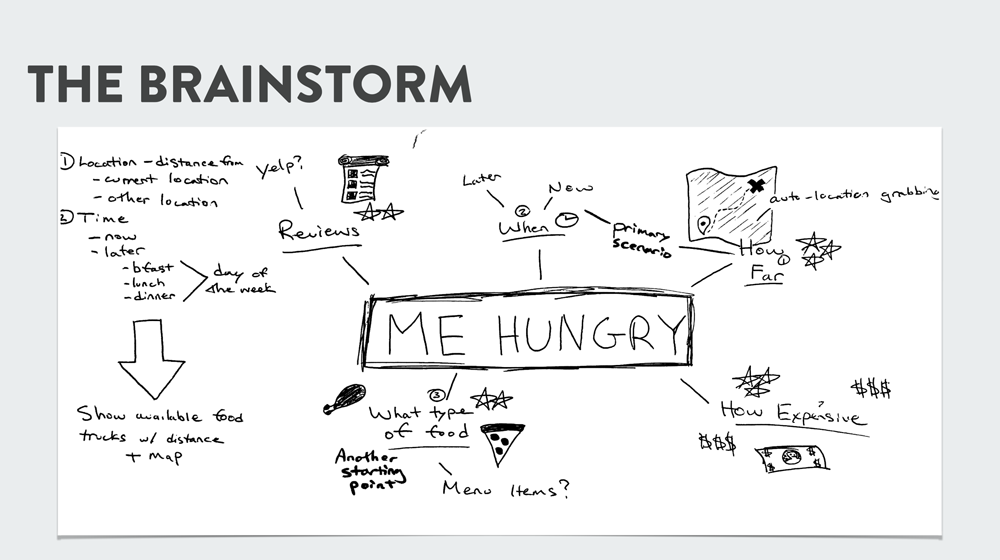 THE BRAINSTORM
① Location - distance from
- current location
- other location
② Time
- now
- later
- bfast
- lunch
- dinner
day of
the week
Show available food
trucks w/ distance
+ map
yelp?
Reviews
Later
Now
②
When
primary
scenario
auto-location grabbing
How
①
Far
ME HUNGRY
③
What type
of food
Another
starting
point
Menu Items?
$$$
How Expensive
?
$$$
$ $
$ $